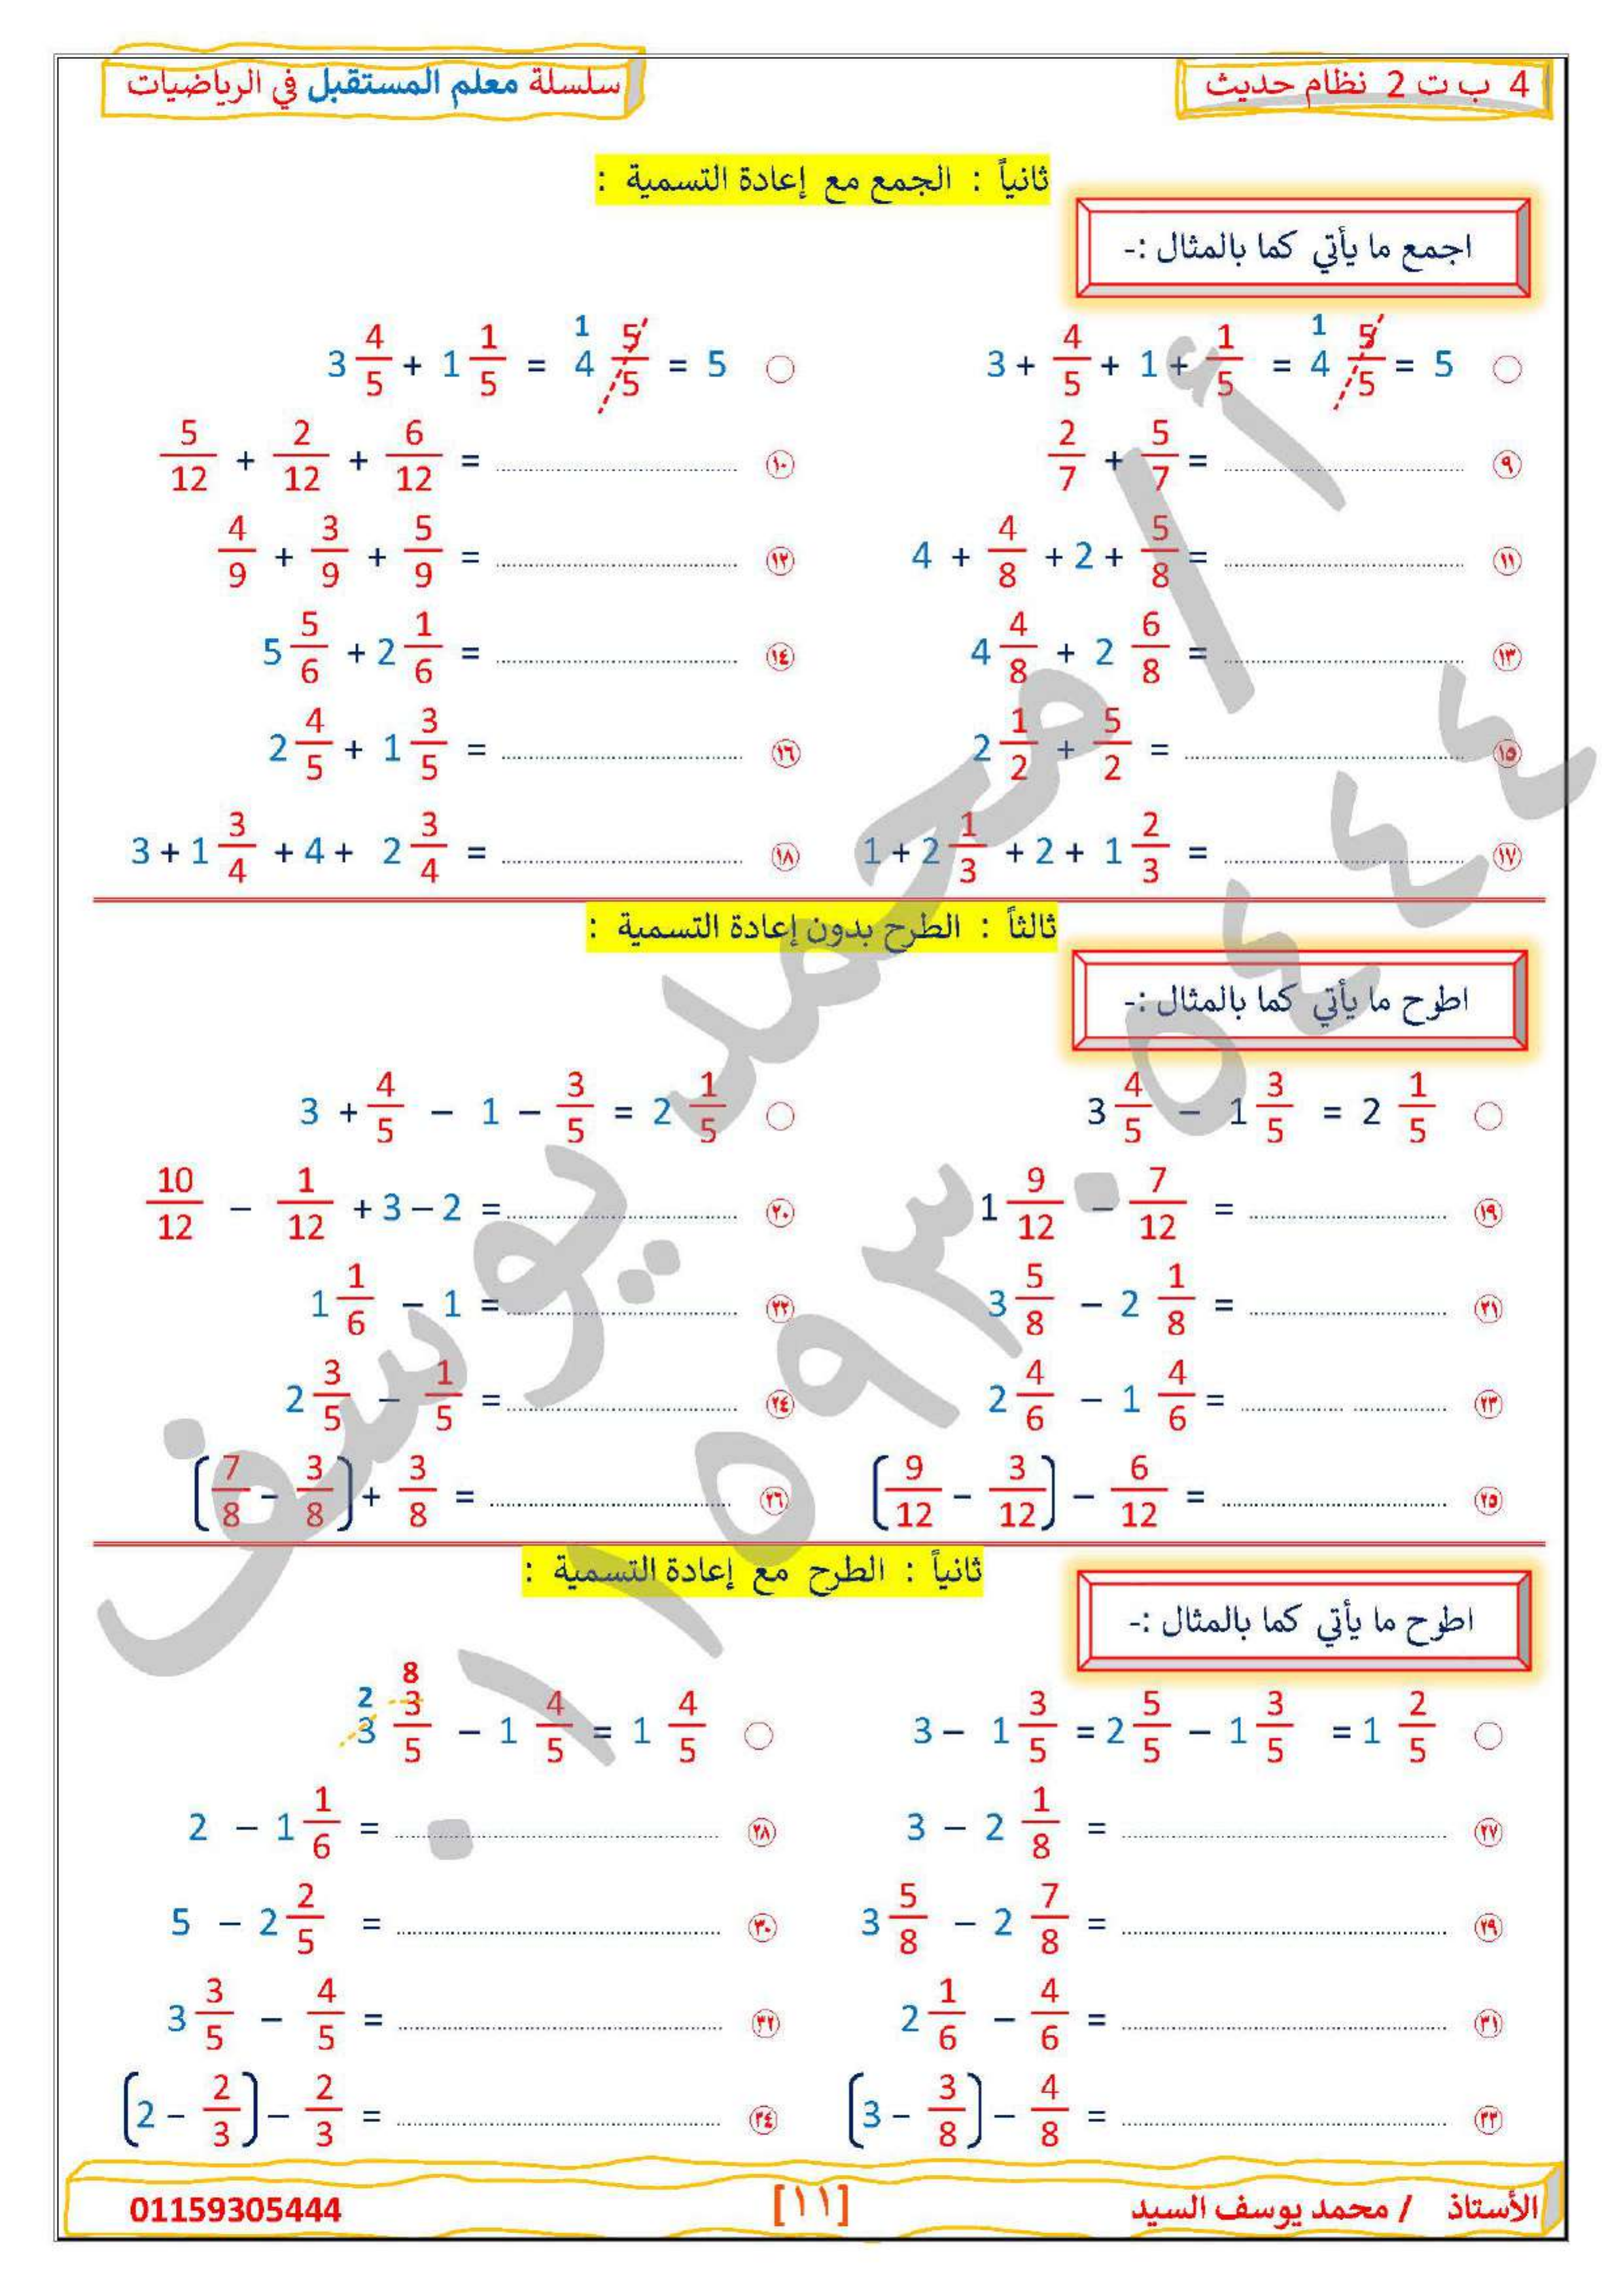 4 ب ت 2 نظام حديث
سلسلة معلم المستقبل في الرياضيات
ثانياً : الجمع مع إعادة التسمية :
اجمع ما يأتي كما بالمثال :-
○ 3 + 4/5 + 1 + 1/5 = 1 4 5/5 = 5
○ 3 4/5 + 1 1/5 = 1 4 5/5 = 5
٩ 2/7 + 5/7 = ........................
١٠ 5/12 + 2/12 + 6/12 = ........................
١١ 4 + 4/8 + 2 + 5/8 = ........................
١٢ 4/9 + 3/9 + 5/9 = ........................
١٣ 4 4/8 + 2 6/8 = ........................
١٤ 5 5/6 + 2 1/6 = ........................
١٥ 2 1/2 + 5/2 = ........................
١٦ 2 4/5 + 1 3/5 = ........................
١٧ 1 + 2 1/3 + 2 + 1 2/3 = ........................
١٨ 3 + 1 3/4 + 4 + 2 3/4 = ........................
ثالثاً : الطرح بدون إعادة التسمية :
اطرح ما يأتي كما بالمثال :-
○ 3 4/5 – 1 3/5 = 2 1/5
○ 3 + 4/5 – 1 – 3/5 = 2 1/5
١٩ 1 9/12 – 7/12 = ........................
٢٠ 10/12 – 1/12 + 3 – 2 = ........................
٢١ 3 5/8 – 2 1/8 = ........................
٢٢ 1 1/6 – 1 = ........................
٢٣ 2 4/6 – 1 4/6 = ........................
٢٤ 2 3/5 – 1/5 = ........................
٢٥ (9/12 – 3/12) – 6/12 = ........................
٢٦ (7/8 – 3/8) + 3/8 = ........................
ثانياً : الطرح مع إعادة التسمية :
اطرح ما يأتي كما بالمثال :-
○ 3 – 1 3/5 = 2 5/5 – 1 3/5 = 1 2/5
○ 2 8 3 3/5 – 1 4/5 = 1 4/5
٢٧ 3 – 2 1/8 = ........................
٢٨ 2 – 1 1/6 = ........................
٢٩ 3 5/8 – 2 7/8 = ........................
٣٠ 5 – 2 2/5 = ........................
٣١ 2 1/6 – 4/6 = ........................
٣٢ 3 3/5 – 4/5 = ........................
٣٣ (3 – 3/8) – 4/8 = ........................
٣٤ (2 – 2/3) – 2/3 = ........................
الأستاذ / محمد يوسف السيد
[١١]
01159305444
أ / محمد يوسف
٠١١٥٩٣٠٥٤٤٤